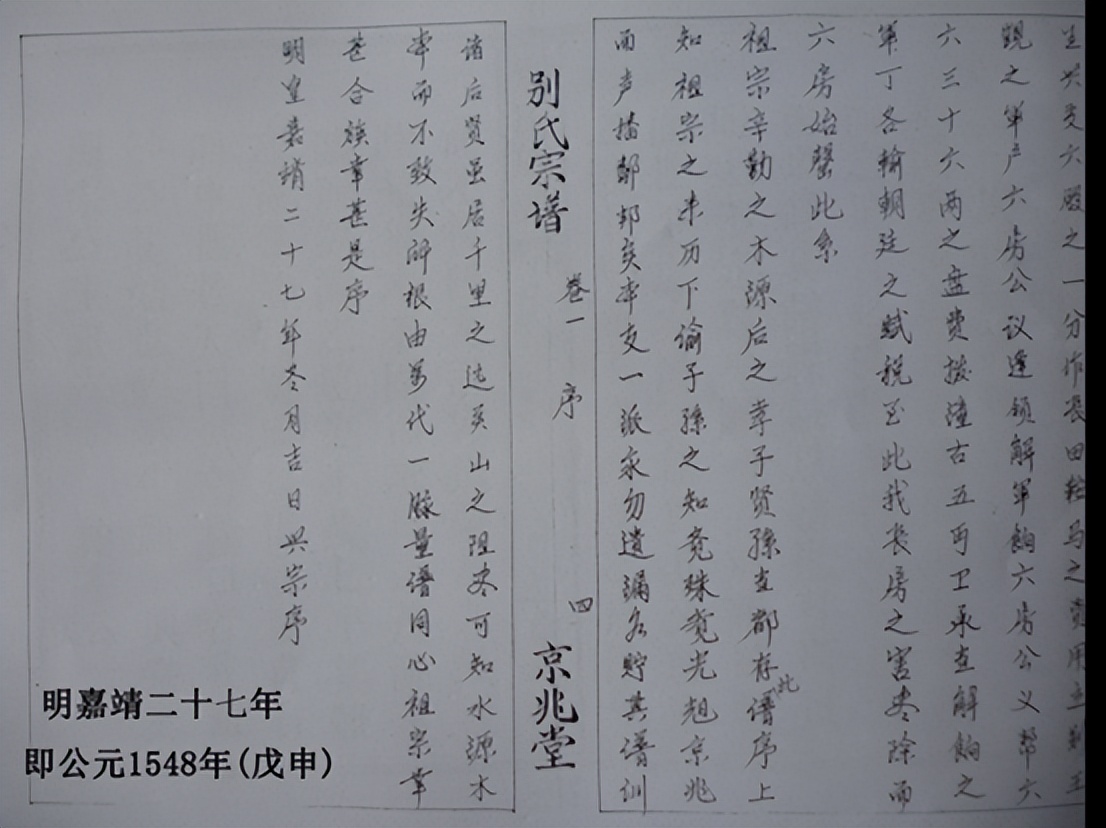 生共支六股之一分作長田粒马之賣用立到王
觊之军产六房公议逢领解军餉六房公义帮六
六三十六两之盘费拨潼古五丙卫承查解餉之
军丁各輸朝廷之赋税至此我長房之害尽除而
六房始罄此系
祖宗辛勤之木源后之孝子贤孫查郡存此谱序上
知祖宗之来历下谕子孫之知堯珠堯光起京兆
而声播鄒邦矣本支一派永勿遺漏名貯其谱训
别氏宗谱 卷一 序 四 京兆堂
诸后贤虽居千里之远页山之阻尽可知水源木
本而不致失部根由万代一脉量谱同心祖宗幸
甚合族幸甚是序
明皇嘉靖二十七年冬月吉日兴宗序
明嘉靖二十七年
即公元1548年(戊申)